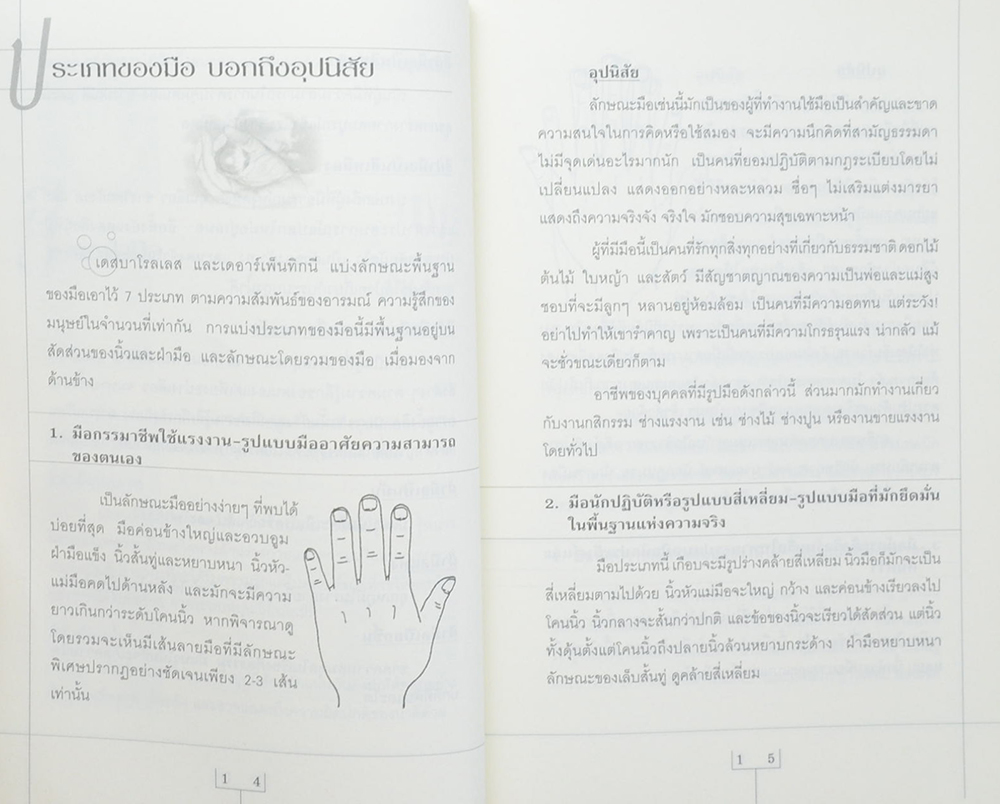 ประเภทของมือ บอกถึงอุปนิสัย
เดสบาโรลเลส และเดอาร์เพ็นทิกนี แบ่งลักษณะพื้นฐาน
ของมือเอาไว้ 7 ประเภท ตามความสัมพันธ์ของอารมณ์ ความรู้สึกของ
มนุษย์ในจำนวนที่เท่ากัน การแบ่งประเภทของมือนี้มีพื้นฐานอยู่บน
สัดส่วนของนิ้วและฝ่ามือ และลักษณะโดยรวมของมือ เมื่อมองจาก
ด้านข้าง
1. มือกรรมาชีพใช้แรงงาน-รูปแบบมืออาศัยความสามารถ
ของตนเอง
เป็นลักษณะมืออย่างง่ายๆ ที่พบได้
บ่อยที่สุด มือค่อนข้างใหญ่และอวบอูม
ฝ่ามือแข็ง นิ้วสั้นทู่และหยาบหนา นิ้วหัว-
แม่มือคดไปด้านหลัง และมักจะมีความ
ยาวเกินกว่าระดับโคนนิ้ว หากพิจารณาดู
โดยรวมจะเห็นมีเส้นลายมือที่มีลักษณะ
พิเศษปรากฏอย่างชัดเจนเพียง 2-3 เส้น
เท่านั้น
1 4
อุปนิสัย
ลักษณะมือเช่นนี้มักเป็นของผู้ที่ทำงานใช้มือเป็นสำคัญและขาด
ความสนใจในการคิดหรือใช้สมอง จะมีความนึกคิดที่สามัญธรรมดา
ไม่มีจุดเด่นอะไรมากนัก เป็นคนที่ยอมปฏิบัติตามกฎระเบียบโดยไม่
เปลี่ยนแปลง แสดงออกอย่างหละหลวม ซื่อๆ ไม่เสริมแต่งมารยา
แสดงถึงความจริงจัง จริงใจ มักชอบความสุขเฉพาะหน้า
ผู้ที่มีมือนี้เป็นคนที่รักทุกสิ่งทุกอย่างที่เกี่ยวกับธรรมชาติ ดอกไม้
ต้นไม้ ใบหญ้า และสัตว์ มีสัญชาตญาณของความเป็นพ่อและแม่สูง
ชอบที่จะมีลูกๆ หลานอยู่ห้อมล้อม เป็นคนที่มีความอดทน แต่ระวัง!
อย่าไปทำให้เขารำคาญ เพราะเป็นคนที่มีความโกรธรุนแรง น่ากลัว แม้
จะชั่วขณะเดียวก็ตาม
อาชีพของบุคคลที่มีรูปมือดังกล่าวนี้ ส่วนมากมักทำงานเกี่ยว
กับงานกสิกรรม ช่างแรงงาน เช่น ช่างไม้ ช่างปูน หรืองานขายแรงงาน
โดยทั่วไป
2. มือนักปฏิบัติหรือรูปแบบสี่เหลี่ยม-รูปแบบมือที่มักยึดมั่น
ในพื้นฐานแห่งความจริง
มือประเภทนี้ เกือบจะมีรูปร่างคล้ายสี่เหลี่ยม นิ้วมือก็มักจะเป็น
สี่เหลี่ยมตามไปด้วย นิ้วหัวแม่มือจะใหญ่ กว้าง และค่อนข้างเรียวลงไป
โคนนิ้ว นิ้วกลางจะสั้นกว่าปกติ และข้อของนิ้วจะเรียวได้สัดส่วน แต่นิ้ว
ทั้งดุ้นตั้งแต่โคนนิ้วถึงปลายนิ้วล้วนหยาบกระด้าง ฝ่ามือหยาบหนา
ลักษณะของเล็บสั้นทู่ ดูคล้ายสี่เหลี่ยม
1 5